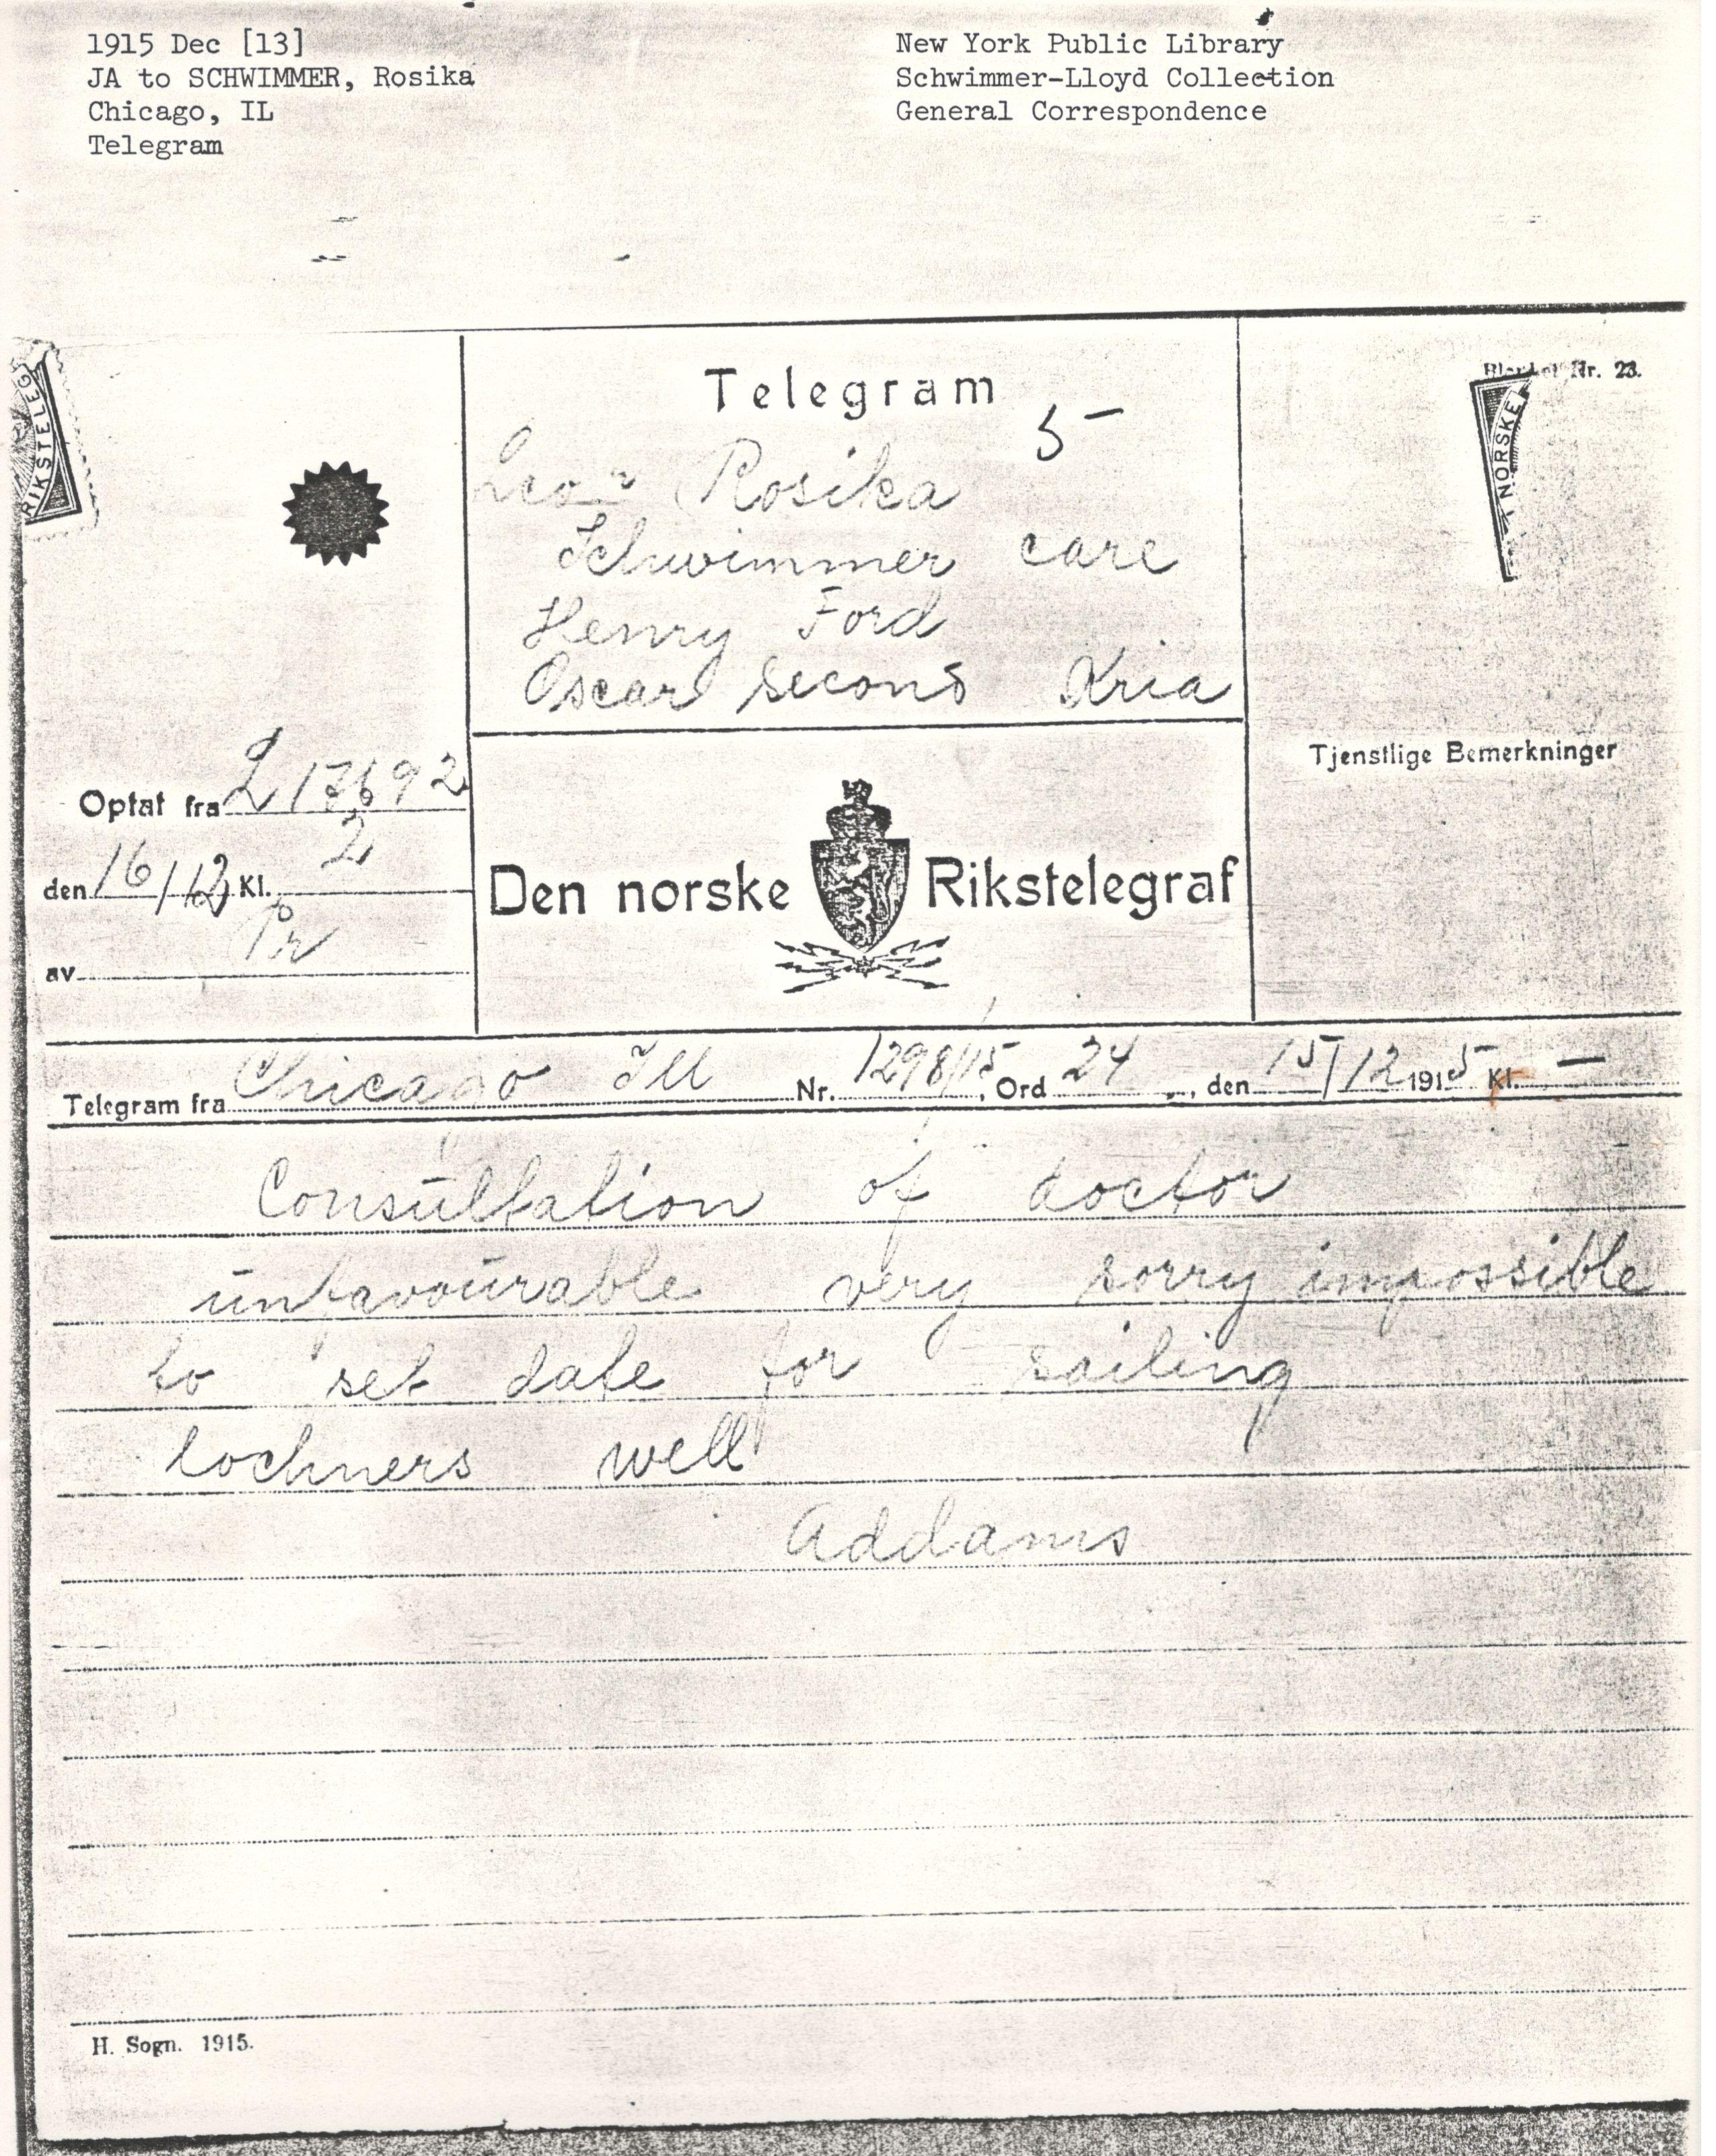 1915 Dec [13]
JA to SCHWIMMER, Rosika
Chicago, IL
Telegram
New York Public Library
Schwimmer-Lloyd Collection
General Correspondence
RIKSTELEG
Telegram
5 –
Rosika
Schwimmer care
Henry Ford
Oscar second Kria
Nr. 23.
NORSKE
Tjenstlige Bemerkninger
Optat fra
den 16/12 Kl. 2
av
Den norske Rikstelegraf
Telegram fra Chicago Ill Nr. 1298/15, Ord 24, den 15/12 1915 Kl. –
Consultation of doctor
unfavourable very sorry impossible
to set date for sailing
lochners well
Addams
H. Sogn. 1915.